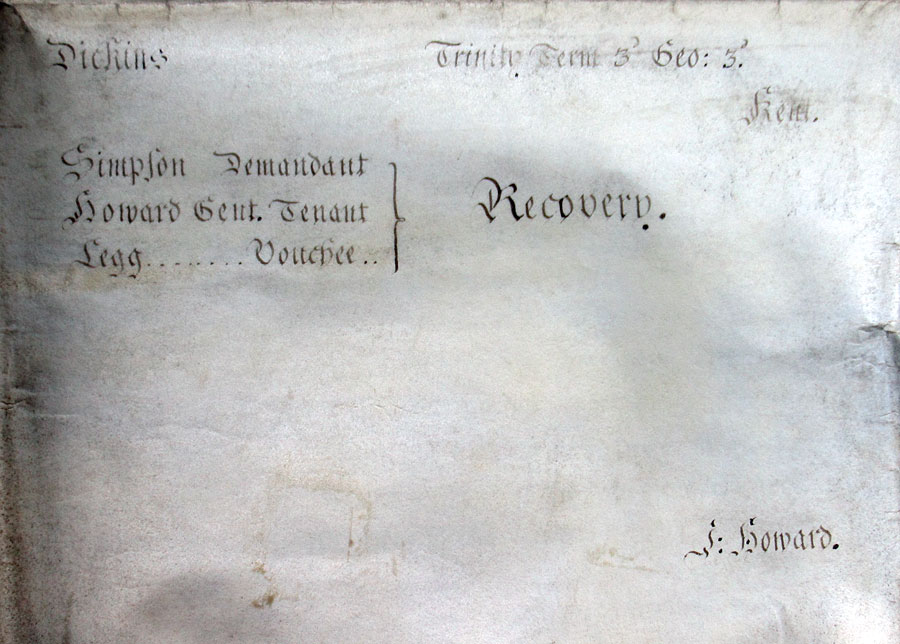 Dickins Trinity Term 3d Geo: 3d.
Kent.
Simpson Demandant
Howard Gent. Tenant
Legg........ Vouchee..
Recovery.
J: Howard.